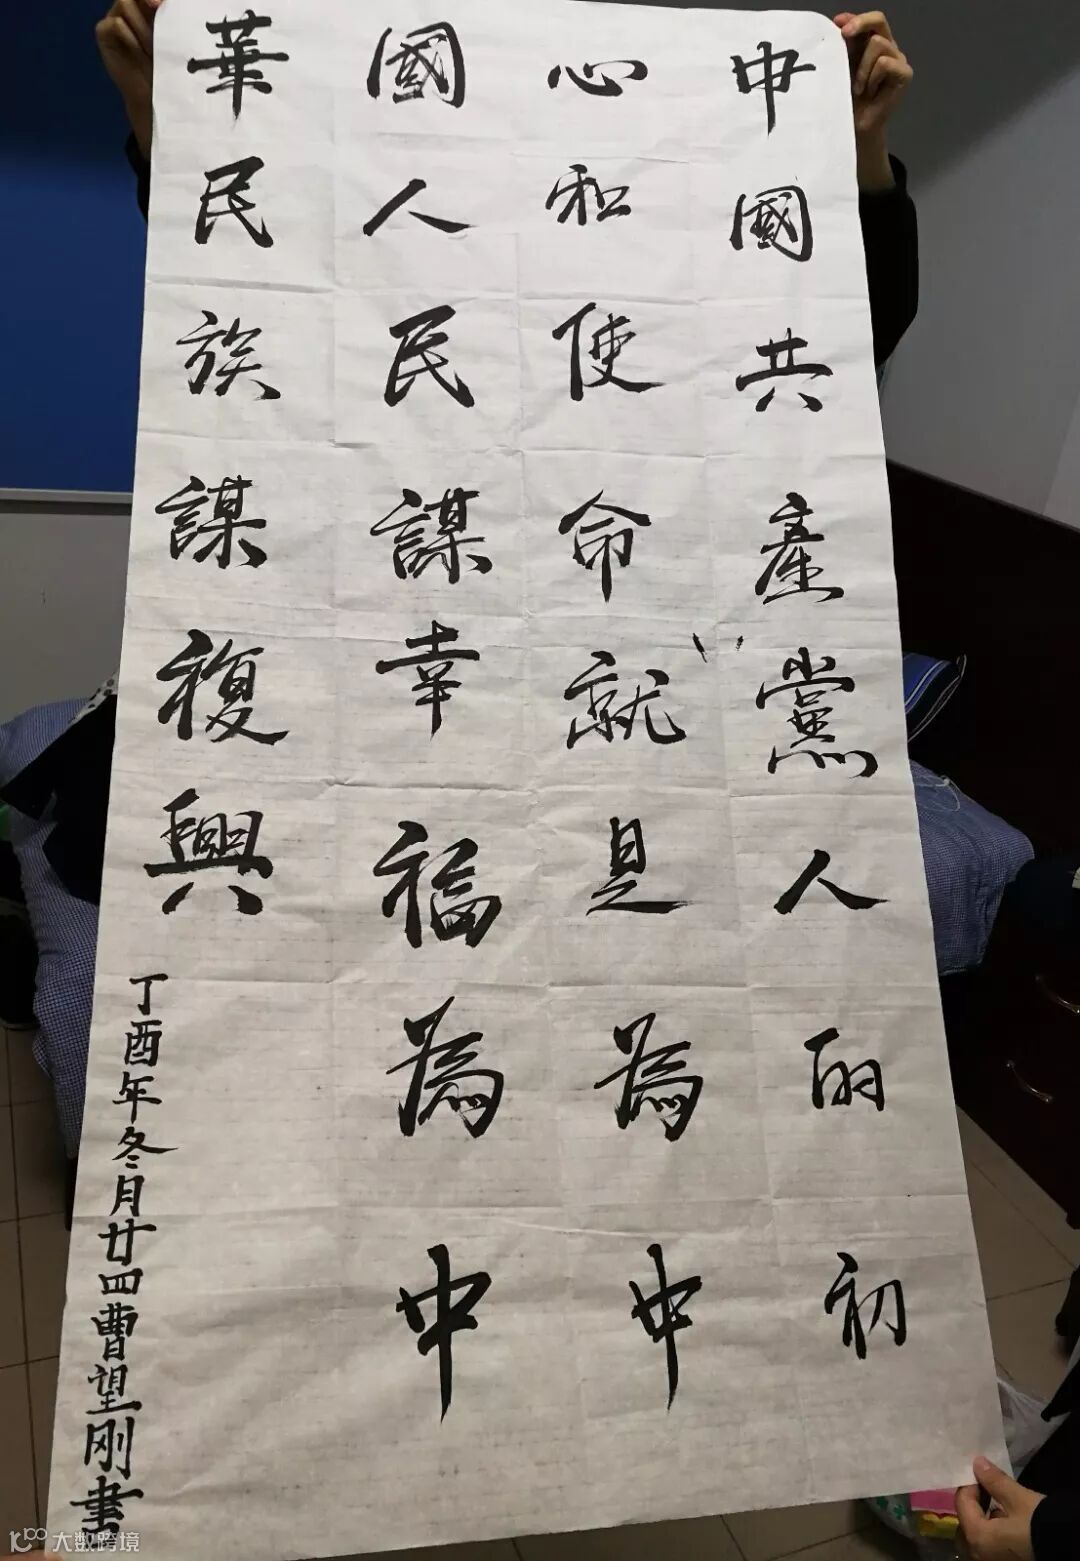 中國共產黨人的初
心和使命就是為中
國人民謀幸福為中
華民族謀復興
丁酉年冬月廿四曹望刚書
大数跨境